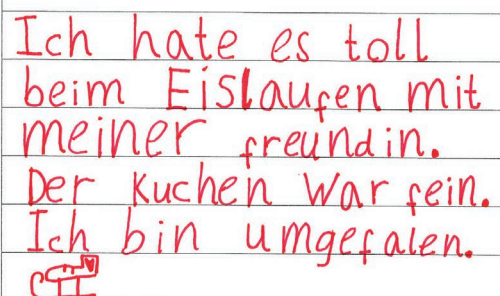 Ich hate es toll
beim Eislaufen mit
meiner freundin.
Der Kuchen war fein.
Ich bin umgefalen.